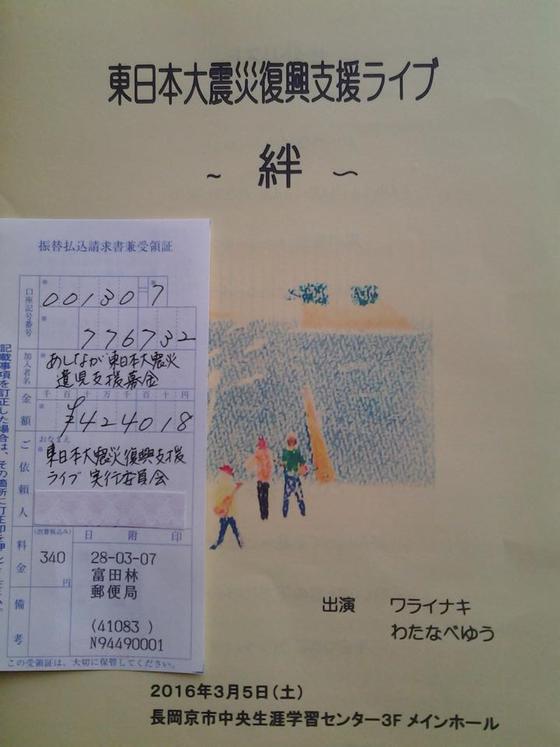 東日本大震災復興支援ライブ
~ 絆 ~
出演 ワライナキ
わたなべゆう
2016年3月5日(土)
長岡京市中央生涯学習センター3F メインホール
振替払込請求書兼受領証
口座記号番号
00130 7
776732
加入者名
あしなが東日本大震災
遺児支援募金
金額
千 百 十 万 千 百 十 円
¥424018
ご依頼人
おなまえ
東日本大震災復興支援
ライブ実行委員会
料金
(消費税込み)
340
円
日附印
28-03-07
富田林
郵便局
(41083 )
N94490001
備考
この受領証は、大切に保管してください。
記載事項を訂正した場合は、その箇所に訂正印を押し